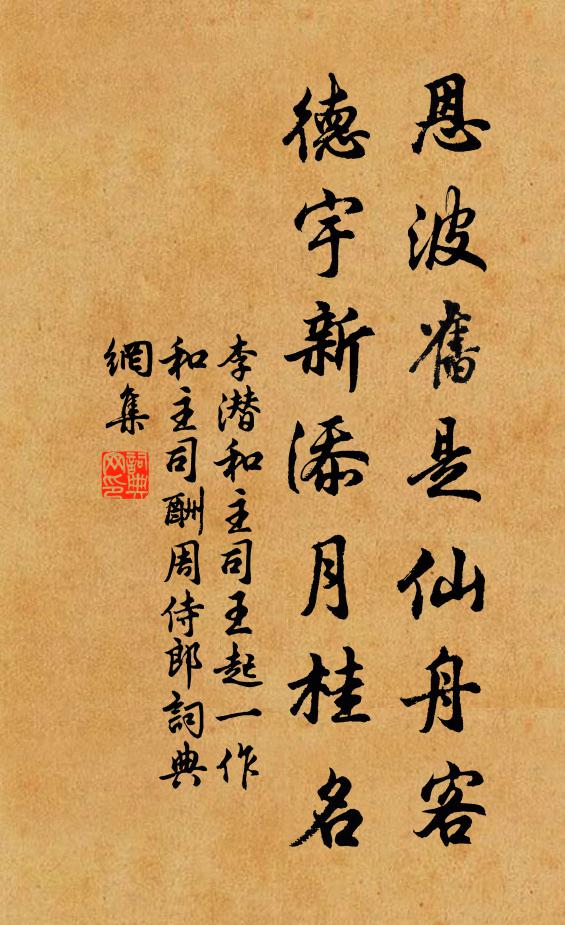 恩波舊是仙舟客
德宇新添月桂名
李潜和主司王起一作
和主司酬周侍郎詞典
網集
詞典網印